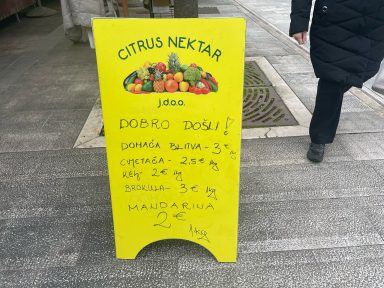 CITRUS NEKTAR
j.d.o.o.
DOBRO DOŠLI!
DOMAĆA BLITVA - 3€ kg
CVJETAČA - 2,5€ kg
KELJ 2€ kg
BROKULA - 3€ kg
MANDARINA
2€